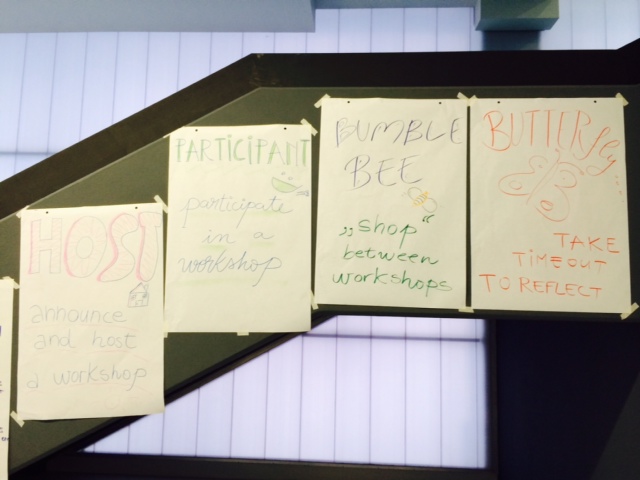 HOST
announce
and host
a workshop
PARTICIPANT
participate
in a
workshop
BUMBLE
BEE
„shop“
between
workshops
BUTTERfly...
TAKE
TIMEOUT
TO REFLECT